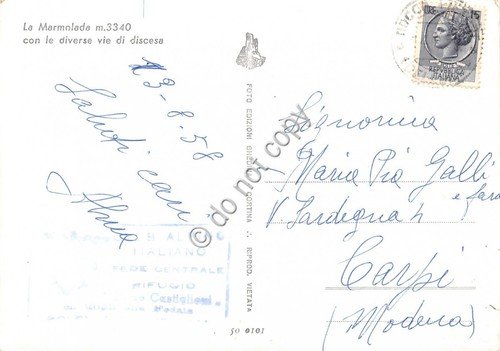 La Marmolada m.3340
con le diverse vie di discesa
13-8-58
Saluti cari
FOTO EDIZIONI GHEDINA CORTINA RIPROD. VIETATA
© do not copy
LIRE 15
REPUBBLICA
ITALIANA
Signorina
Maria Pia Galli
e fam
V. Sardegna 4
Carpi
(Modena)
ALPINO
ITALIANO
SEDE CENTRALE
RIFUGIO
Castiglioni
50 0101